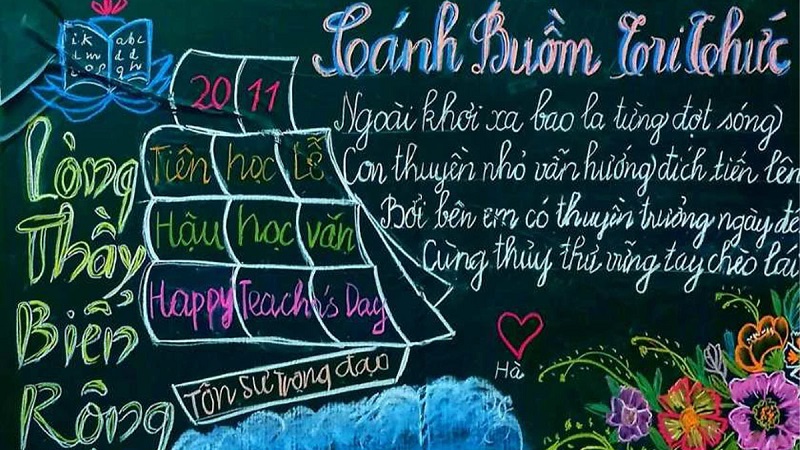 Cánh Buồm Tri Thức
i k abc
20 11
Ngoài khơi xa bao la từng đợt sóng
Tiên học Lễ
Con thuyền nhỏ vẫn hướng đích tiến lên
Hậu học văn
Bởi bên em có thuyền trưởng ngày đê
Cùng thủy thủ vững tay chèo lái
Happy Teach's Day
Tôn Sư Trọng đạo
Hà
Lòng
Thầy
Biển
Rộng